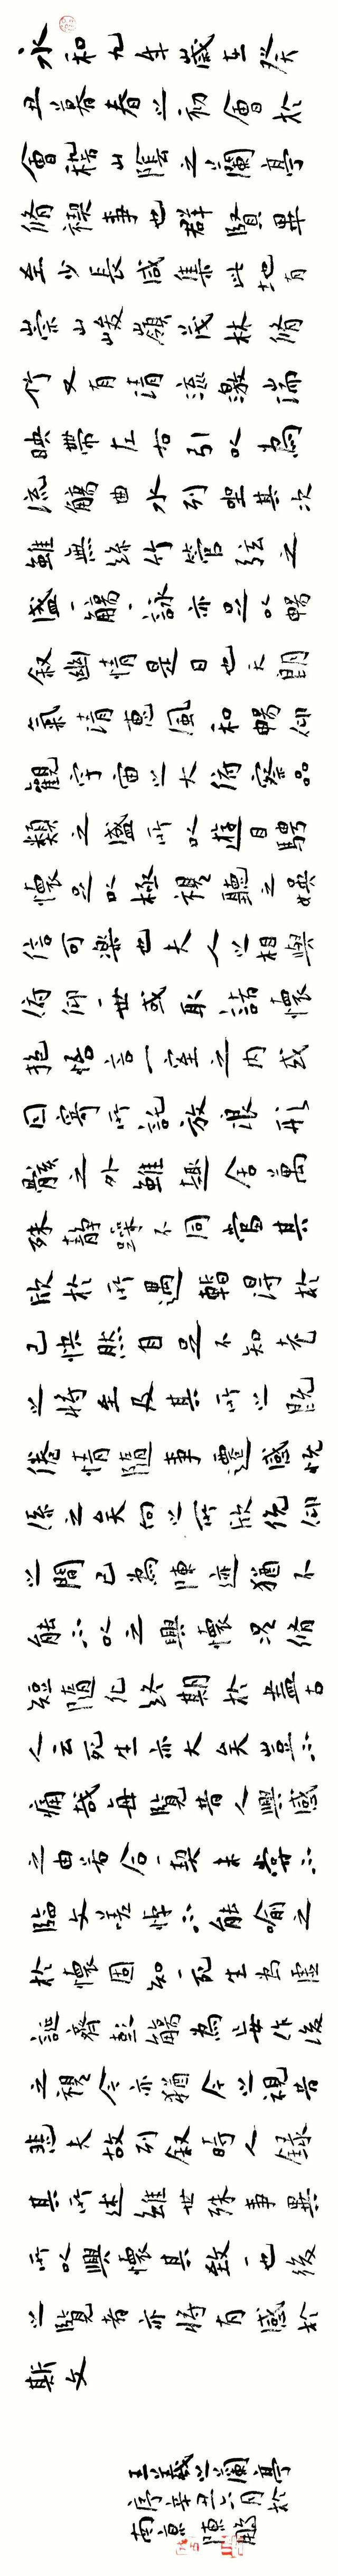 永和九年歲在癸
丑暮春之初會於
會稽山陰之蘭亭
脩禊事也群賢畢
至少長咸集此地有
崇山峻嶺茂林脩
竹又有清流激湍
映帶左右引以為
流觴曲水列坐其次
雖無絲竹管弦之
盛一觴一詠亦足以暢
敘幽情是日也天朗
氣清惠風和暢仰
觀宇宙之大俯察品
類之盛所以遊目騁
懷足以極視聽之娛
信可樂也夫人之相與
俯仰一世或取諸懷
抱悟言一室之內或
因寄所託放浪形
骸之外雖趣舍萬
殊靜躁不同當其
欣於所遇輒得於
己快然自足不知老
之將至及其所之既
倦情隨事遷感慨
係之矣向之所欣俛仰
之間已為陳迹猶不
能不以之興懷況脩
短隨化終期於盡古
人云死生亦大矣豈不
痛哉每覽昔人興感
之由若合一契未嘗不
臨文嗟悼不能喻之
於懷固知一死生為虛
誕齊彭殤為妄作後
之視今亦猶今之視昔
悲夫故列敘時人錄
其所述雖世殊事異
所以興懷其致一也後
之覽者亦將有感於
斯文
王羲之蘭亭
序辛丑六月於
南京陳鵬